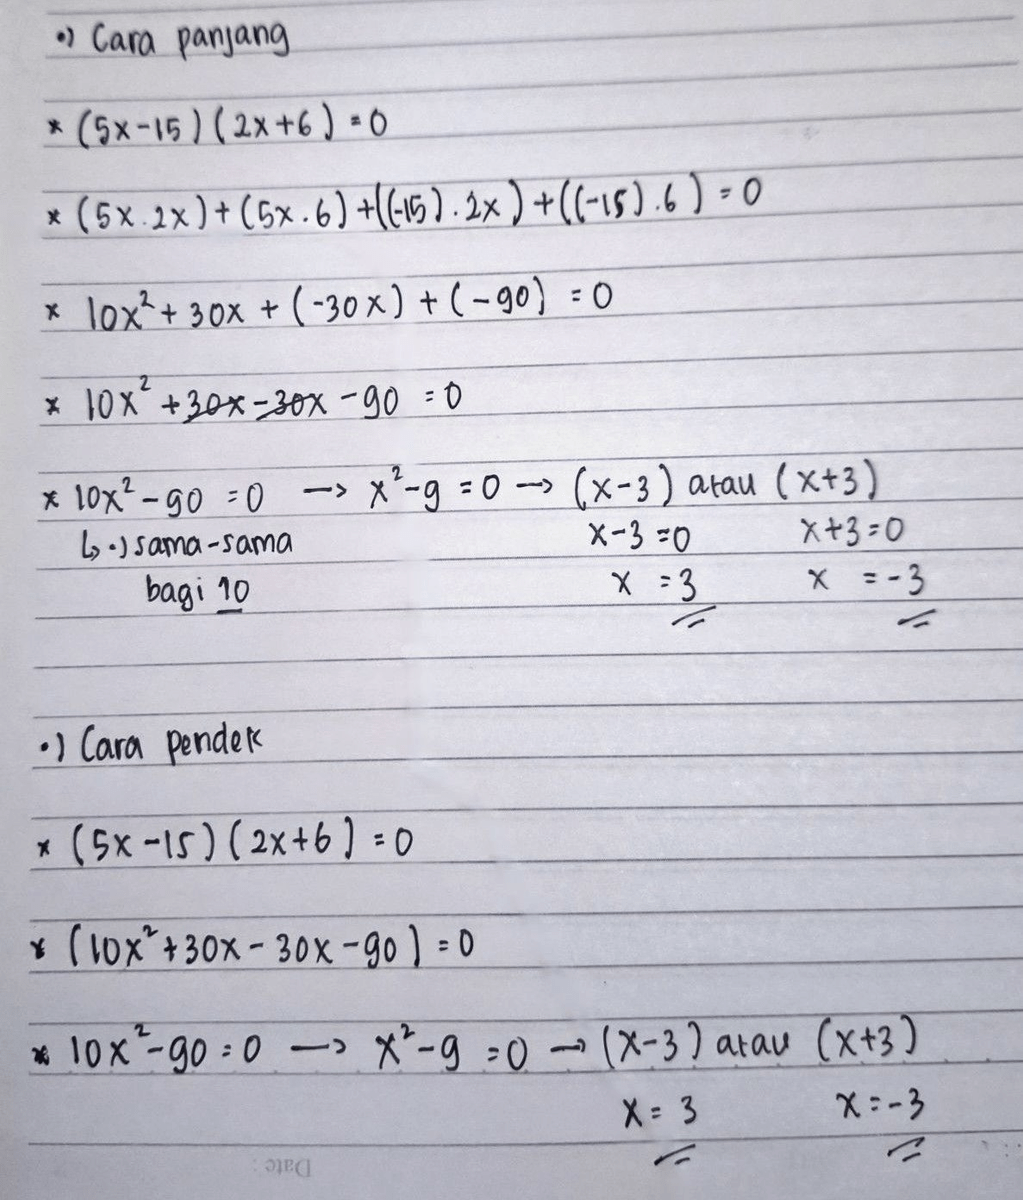 •) Cara panjang
* (5x-15)(2x+6)=0
* (5x.2x)+(5x.6)+((-15).2x)+((-15).6)=0
* 10x²+30x+(-30x)+(-90)=0
* 10x²+30x-30x-90=0
* 10x²-90=0 → x²-9=0 → (x-3) atau (x+3)
↳ •) sama-sama x-3=0 x+3=0
bagi 10 x=3 x=-3
•) Cara pendek
* (5x-15)(2x+6)=0
* (10x²+30x-30x-90)=0
* 10x²-90=0 → x²-9=0 → (x-3) atau (x+3)
x=3 x=-3
Date: